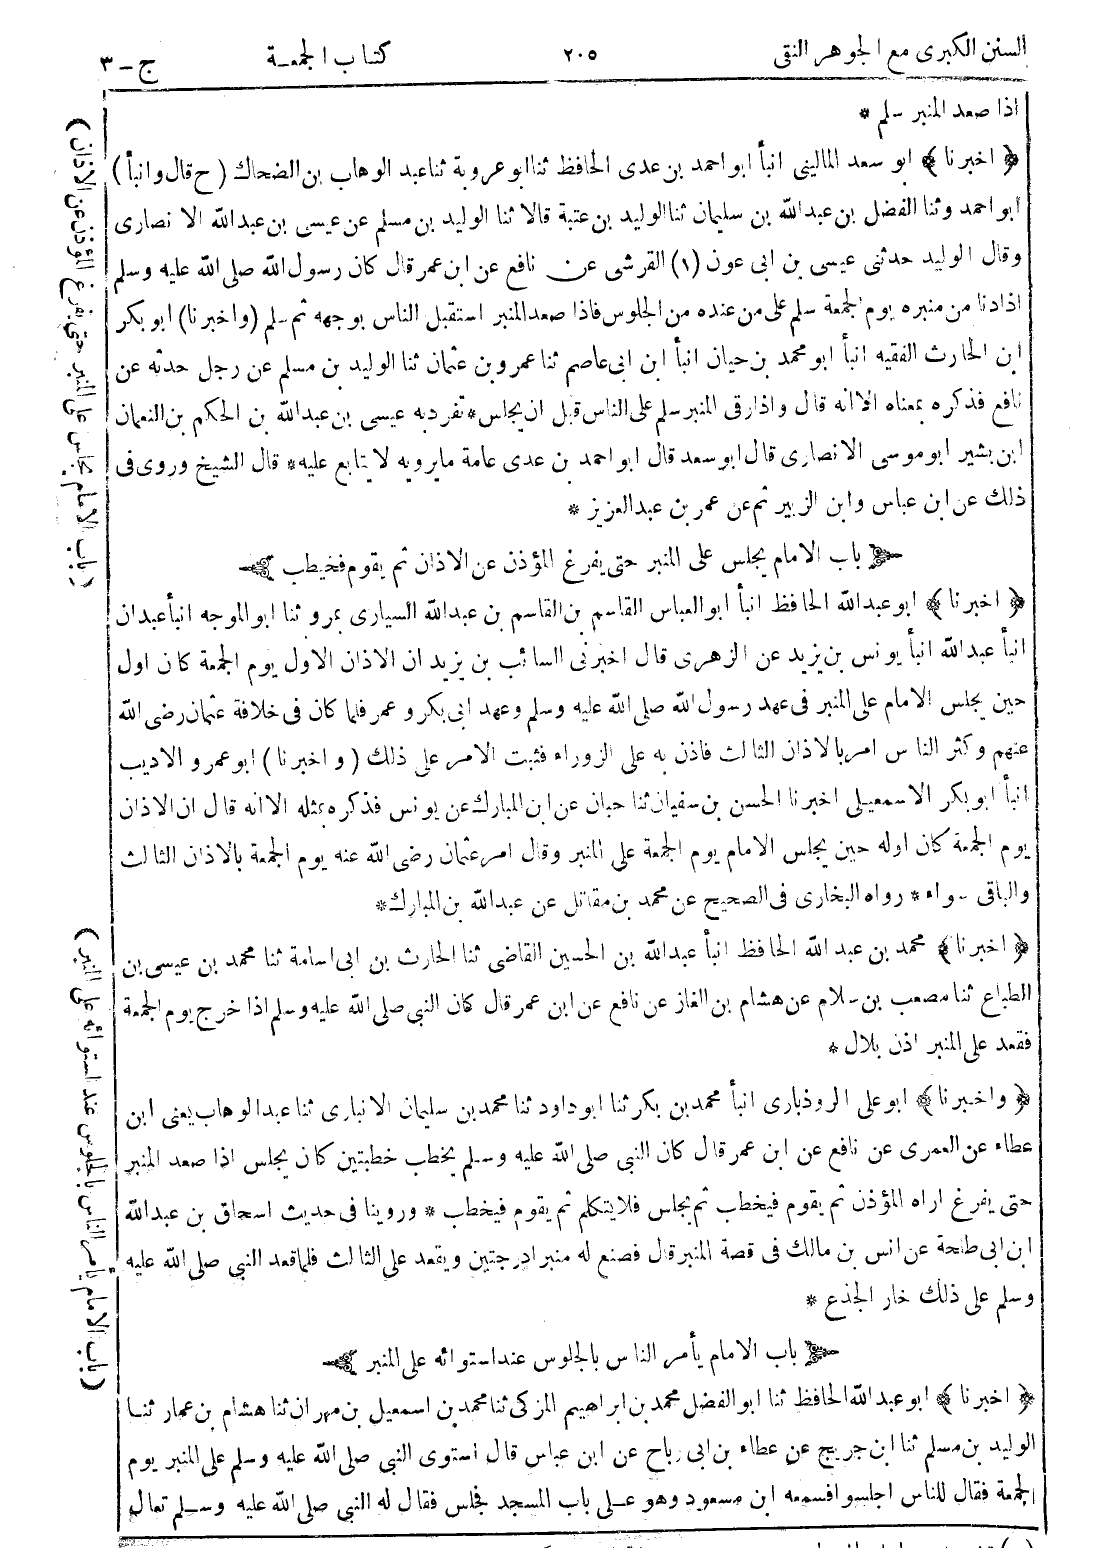 السنن الكبرى مع الجوهر النقى
٢٠٥
كتاب الجمعـة
ج - ٣
اذا صعد المنبر سلم *
﴿ اخبرنا ﴾ ابو سعد المالينى انبأ ابو احمد بن عدى الحافظ ثنا ابو عروبة ثنا عبد الوهاب بن الضحاك ( ح قال وانبأ )
ابو احمد وثنا الفضل بن عبدالله بن سليمان ثنا الوليد بن عتبة قالا ثنا الوليد بن مسلم عن عيسى بن عبدالله الانصارى
وقال الوليد حدثنى عيسى بن ابى عون (١) القرشى عن نافع عن ابن عمر قال كان رسول الله صلى الله عليه وسلم
اذا دنا من منبره يوم الجمعة سلم على من عنده من الجلوس فاذا صعد المنبر استقبل الناس بوجهه ثم سلم (واخبرنا) ابو بكر
ابن الحارث الفقيه انبأ ابو محمد بن حيان انبأ ابن ابى عاصم ثنا عمرو بن عثمان ثنا الوليد بن مسلم عن رجل حدثه عن
نافع فذكره بمعناه الا انه قال واذا رقى المنبر سلم على الناس قبل ان يجلس * تفرد به عيسى بن عبدالله بن الحكم بن النعمان
ابن بشير ابو موسى الانصارى قال ابو سعد قال ابو احمد بن عدى عامة ما يرويه لا يتابع عليه * قال الشيخ وروى فى
ذلك عن ابن عباس وابن الزبير ثم عن عمر بن عبدالعزيز *
باب الامام يجلس على المنبر حتى يفرغ المؤذن عن الاذان ثم يقوم فخيطب
﴿ اخبرنا ﴾ ابو عبدالله الحافظ انبأ ابو العباس القاسم بن القاسم بن عبدالله السيارى بمرو ثنا ابو الموجه انبأ عبدان
انبأ عبدالله انبأ يونس بن يزيد عن الزهرى قال اخبرنى السائب بن يزيد ان الاذان الاول يوم الجمعة كان اول
حين يجلس الامام على المنبر فى عهد رسول الله صلى الله عليه وسلم وعهد ابى بكر و عمر فلما كان فى خلافة عثمان رضى الله
عنهم وكثر الناس امر بالاذان الثالث فاذن به على الزوراء فثبت الامر على ذلك ( و اخبرنا ) ابو عمرو الاديب
انبأ ابو بكر الاسمعيلى اخبرنا الحسن بن سفيان ثنا حبان عن ابن المبارك عن يونس فذكره بمثله الا انه قال ان الاذان
يوم الجمعة كان اوله حين يجلس الامام يوم الجمعة على المنبر وقال امر عثمان رضى الله عنه يوم الجمعة بالاذان الثالث
والباقى سواء * رواه البخارى فى الصحيح عن محمد بن مقاتل عن عبدالله بن المبارك *
﴿ اخبرنا ﴾ محمد بن عبد الله الحافظ انبأ عبدالله بن الحسين القاضى ثنا الحارث بن ابى اسامة ثنا محمد بن عيسى بن
الطباع ثنا مصعب بن سلام عن هشام بن الغاز عن نافع عن ابن عمر قال كان النبى صلى الله عليه وسلم اذا خرج يوم الجمعة
فقعد على المنبر اذن بلال *
﴿ واخبرنا ﴾ ابو على الروذبارى انبأ محمد بن بكر ثنا ابو داود ثنا محمد بن سليمان الانبارى ثنا عبدالوهاب يعنى ابن
عطاء عن العمرى عن نافع عن ابن عمر قال كان النبى صلى الله عليه وسلم يخطب خطبتين كان يجلس اذا صعد المنبر
حتى يفرغ اراه المؤذن ثم يقوم فيخطب ثم يجلس فلا يتكلم ثم يقوم فيخطب * وروينا فى حديث اسحاق بن عبدالله
ابن ابى طلحة عن انس بن مالك فى قصة المنبر قال فصنع له منبرا درجتين ويقعد على الثالث فلما قعد النبى صلى الله عليه
وسلم على ذلك خار الجذع *
باب الامام يأمر الناس بالجلوس عند استوائه على المنبر
﴿ اخبرنا ﴾ ابو عبدالله الحافظ ثنا ابو الفضل محمد بن ابراهيم المزكى ثنا محمد بن اسمعيل بن مهران ثنا هشام بن عمار ثنا
الوليد بن مسلم ثنا ابن جريج عن عطاء بن ابى رباح عن ابن عباس قال استوى النبى صلى الله عليه وسلم على المنبر يوم
الجمعة فقال للناس اجلسوا فسمعه ابن مسعود وهو على باب المسجد فجلس فقال له النبى صلى الله عليه وسلم تعال
( باب الامام يجلس على المنبر حتى يفرغ المؤذن عن الاذان )
( باب الامام يأمر الناس بالجلوس عند استوائه على المنبر )